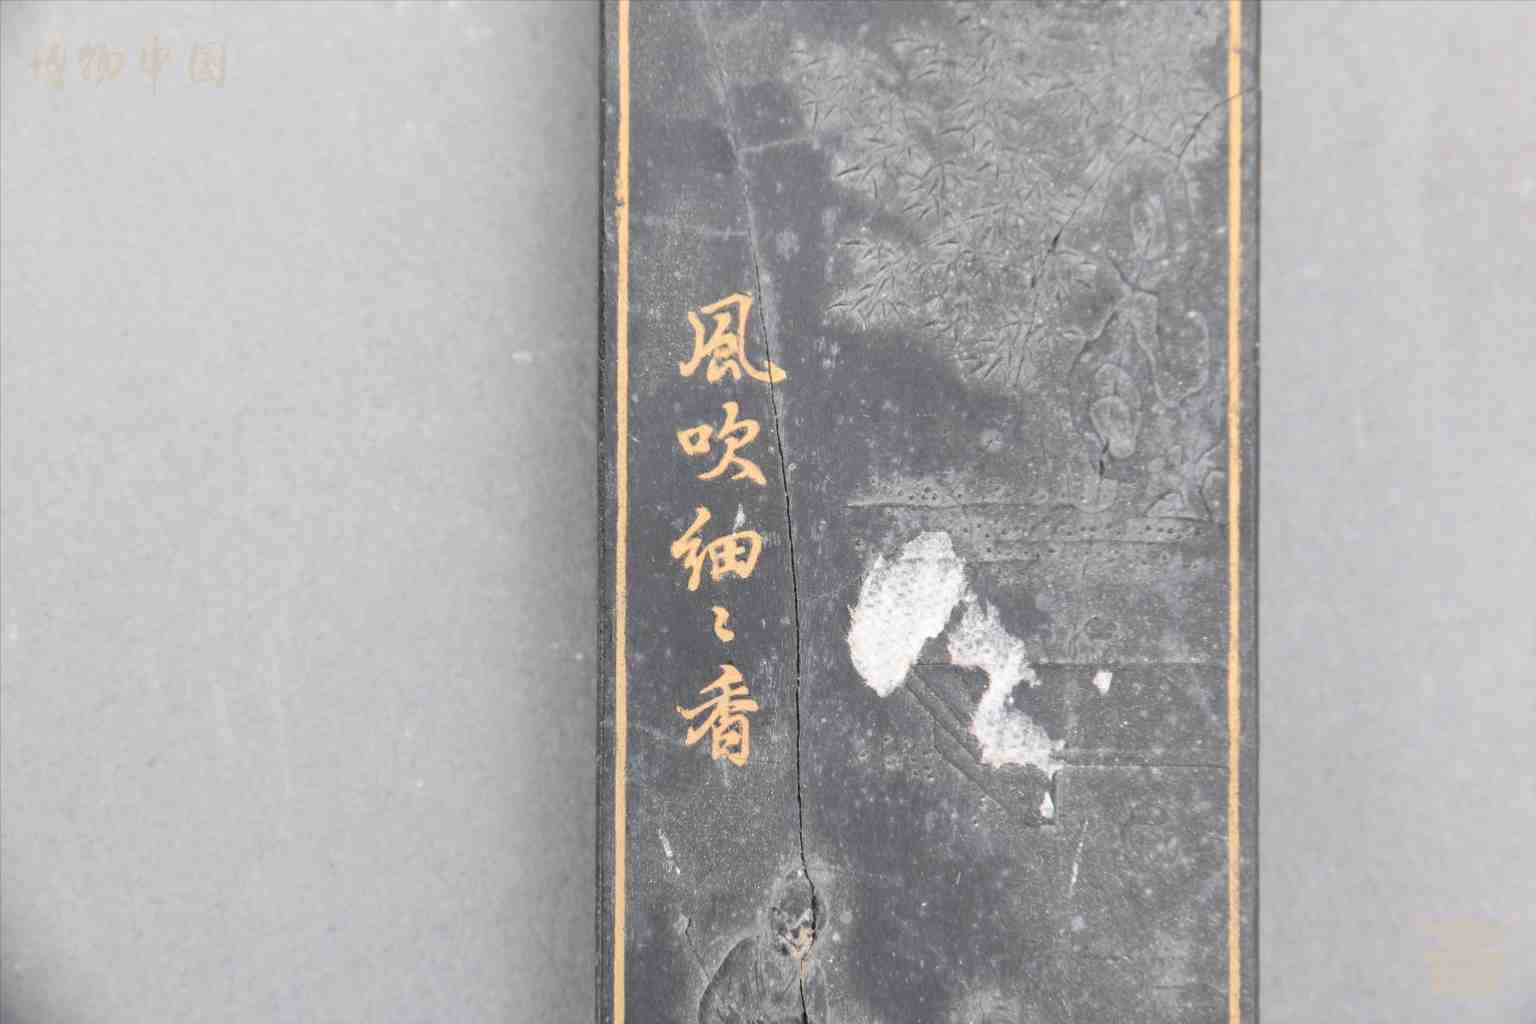 博物中国
風吹細〻香